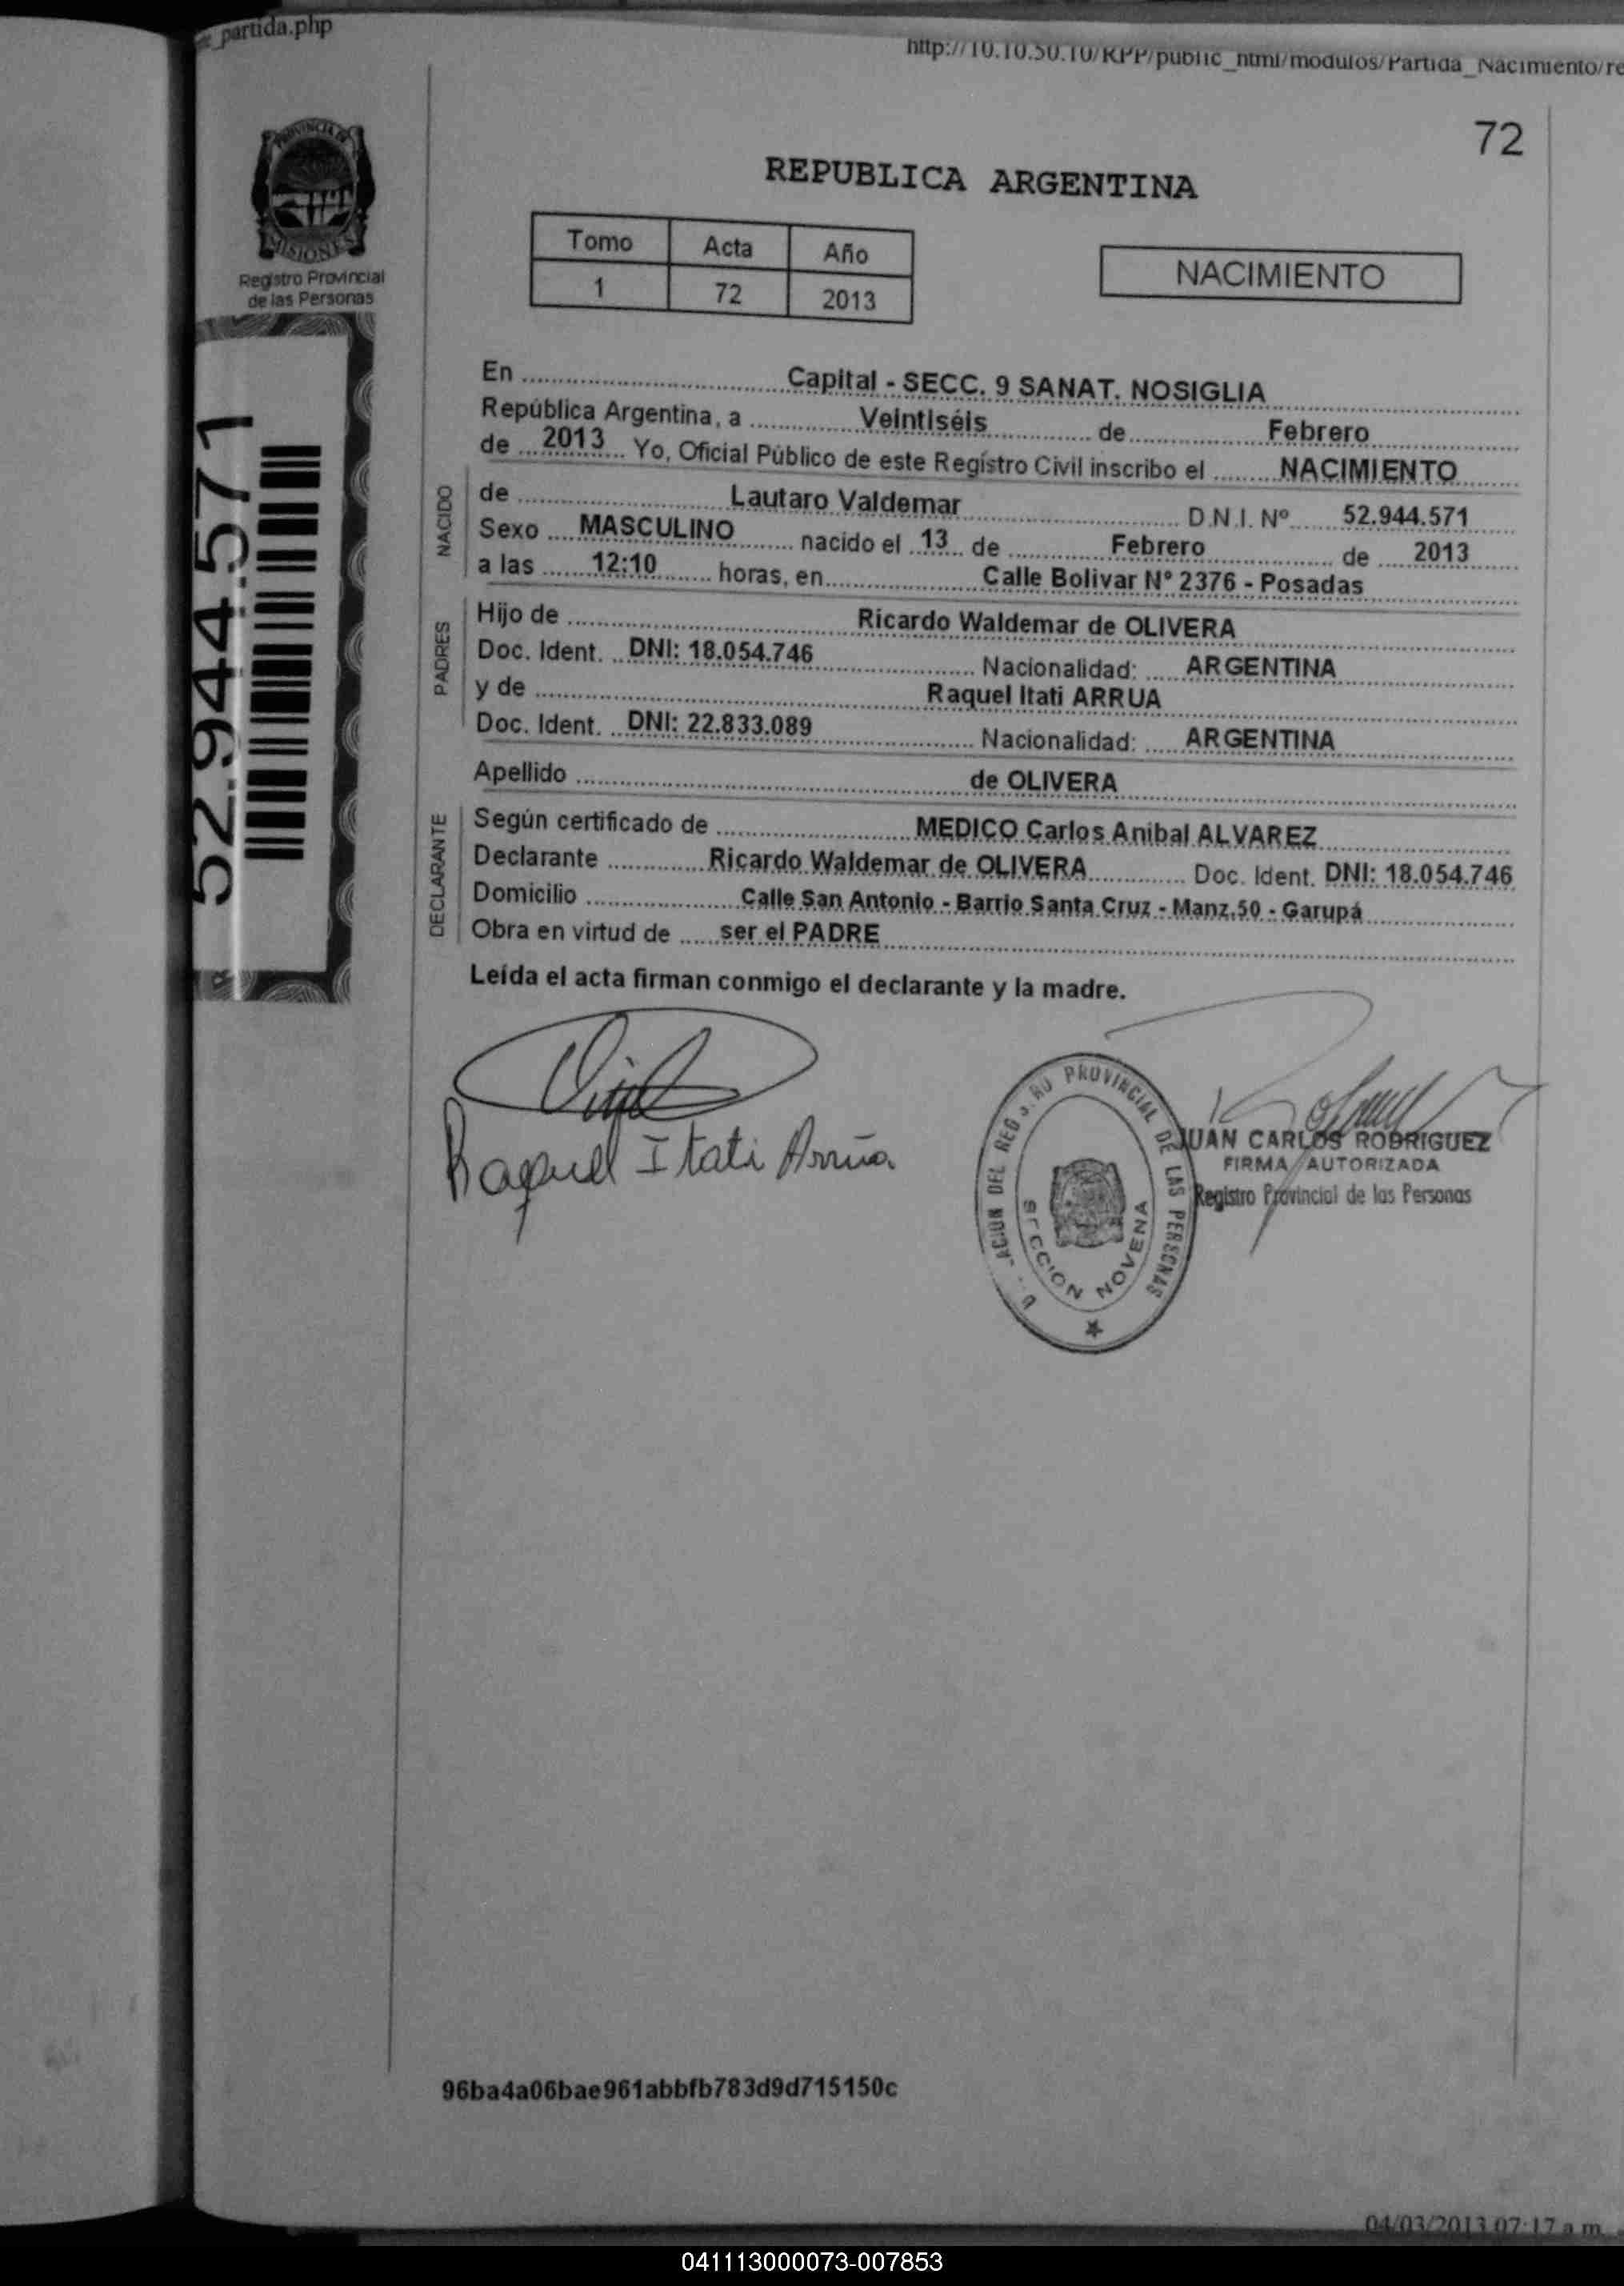 partida.php
http://10.10.50.10/RPP/public_html/modulos/Partida_Nacimiento/re
72
PROVINCIA DE
MISIONES
Registro Provincial
de las Personas
REPUBLICA ARGENTINA
Tomo Acta Año
1 72 2013
NACIMIENTO
52.944.571
En Capital - SECC. 9 SANAT. NOSIGLIA
República Argentina, a Veintiséis de Febrero
de 2013 Yo, Oficial Público de este Registro Civil inscribo el NACIMIENTO
NACIDO
de Lautaro Valdemar D.N.I. Nº 52.944.571
Sexo MASCULINO nacido el 13 de Febrero de 2013
a las 12:10 horas, en Calle Bolivar Nº 2376 - Posadas
PADRES
Hijo de Ricardo Waldemar de OLIVERA
Doc. Ident. DNI: 18.054.746 Nacionalidad: ARGENTINA
y de Raquel Itati ARRUA
Doc. Ident. DNI: 22.833.089 Nacionalidad: ARGENTINA
Apellido de OLIVERA
DECLARANTE
Según certificado de MEDICO Carlos Anibal ALVAREZ
Declarante Ricardo Waldemar de OLIVERA Doc. Ident. DNI: 18.054.746
Domicilio Calle San Antonio - Barrio Santa Cruz - Manz.50 - Garupá
Obra en virtud de ser el PADRE
Leída el acta firman conmigo el declarante y la madre.
Raquel Itati Arrúa
PROVINCIAL DE LAS PERSONAS
SECCION NOVENA
JUAN CARLOS RODRIGUEZ
FIRMA AUTORIZADA
Registro Provincial de las Personas
96ba4a06bae961abbfb783d9d715150c
04/03/2013 07:17 a.m.
041113000073-007853